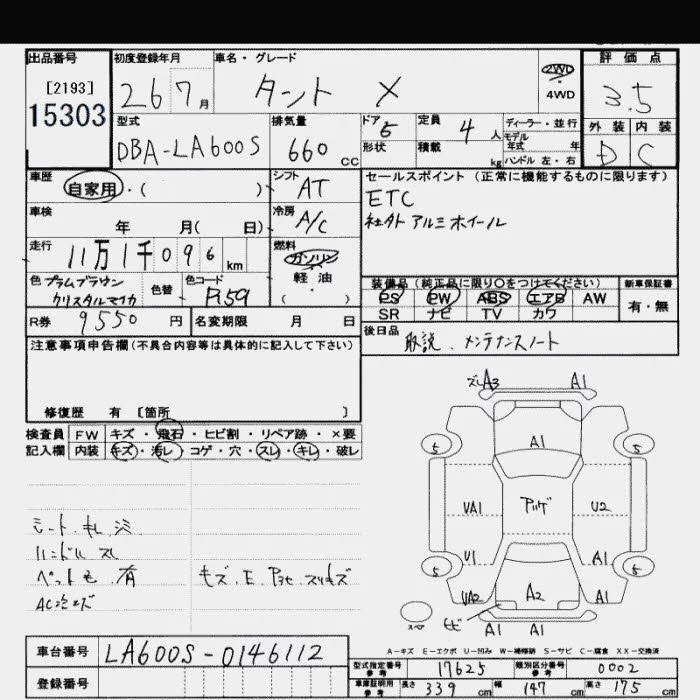 出品番号
[2193]
15303
初度登録年月
26 7 月
車名・グレード
タント X
2WD
4WD
評価点
3.5
外装 内装
D C
型式
DBA-LA600S
排気量
660 cc
ドア 5
形状
定員 4 人
積載 kg
ディーラー・並行
モデル年式 年
ハンドル 左・右
車歴
自家用・( )
シフト
AT
セールスポイント(正常に機能するものに限ります)
ETC
社外アルミホイール
車検
年 月( 日)
冷房
A/C
走行
11万1千096 km
燃料
ガソリン
軽油
( )
色 プラムブラウン
クリスタルマイカ
色替
色コード
P59
装備品(純正品に限り○をつけてください)
PS PW ABS エアB AW
SR ナビ TV カワ
新車保証書
有・無
R券 9550 円
名変期限 月 日
後日品 取説、メンテナンスノート
注意事項申告欄(不具合内容等は具体的に記入して下さい)
修復歴 有 [箇所 ]
検査員
記入欄
FW キズ・飛石・ヒビ割・リペア跡・×要
内装 キズ・汚レ・コゲ・穴・スレ・キレ・破レ
シート キレ
ハンドル スレ
ペット毛 有
キズ、E
ズレA3 A1
5 A1 5
VA1 U2
V1 A1
5 A2 5
VA2 A1
ヒビ
A1 A1
A-キズ E-エクボ U-凹み W-補修跡 S-サビ C-腐食 XX-交換済
車台番号 LA600S-0146112
登録番号
型式指定番号 参考 17625
類別区分番号 参考 0002
車庫証明用 参考 長さ 339 cm 幅 147 cm 高さ 175 cm